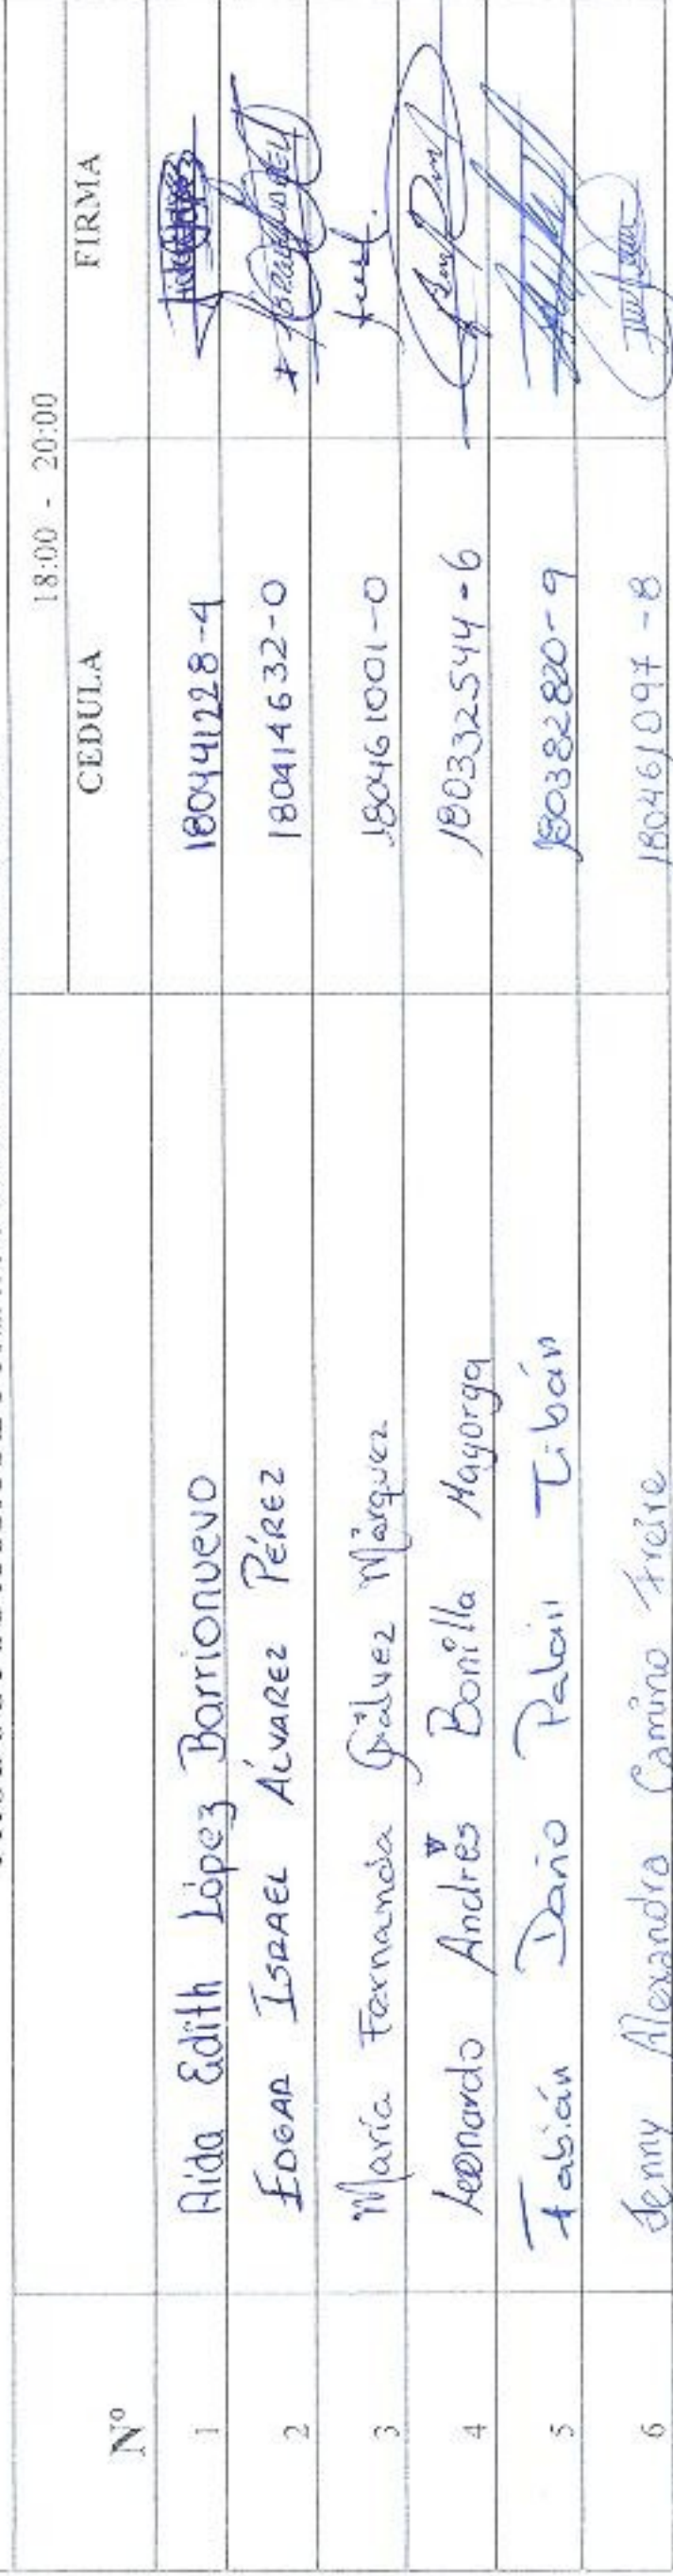 18:00 - 20:00
Nº CEDULA FIRMA
1 Aida Edith López Barrionuevo 180441228-4
2 EDGAR ISRAEL ÁLVAREZ PÉREZ 180414632-0
3 María Fernanda Gálvez Márquez 180461001-0
4 Leonardo Andrés Bonilla Mayorga 180332544-6
5 Fabián Darío Tibán 180382820-9
6 Jenny Alexandra Camino Freire 180461097-8